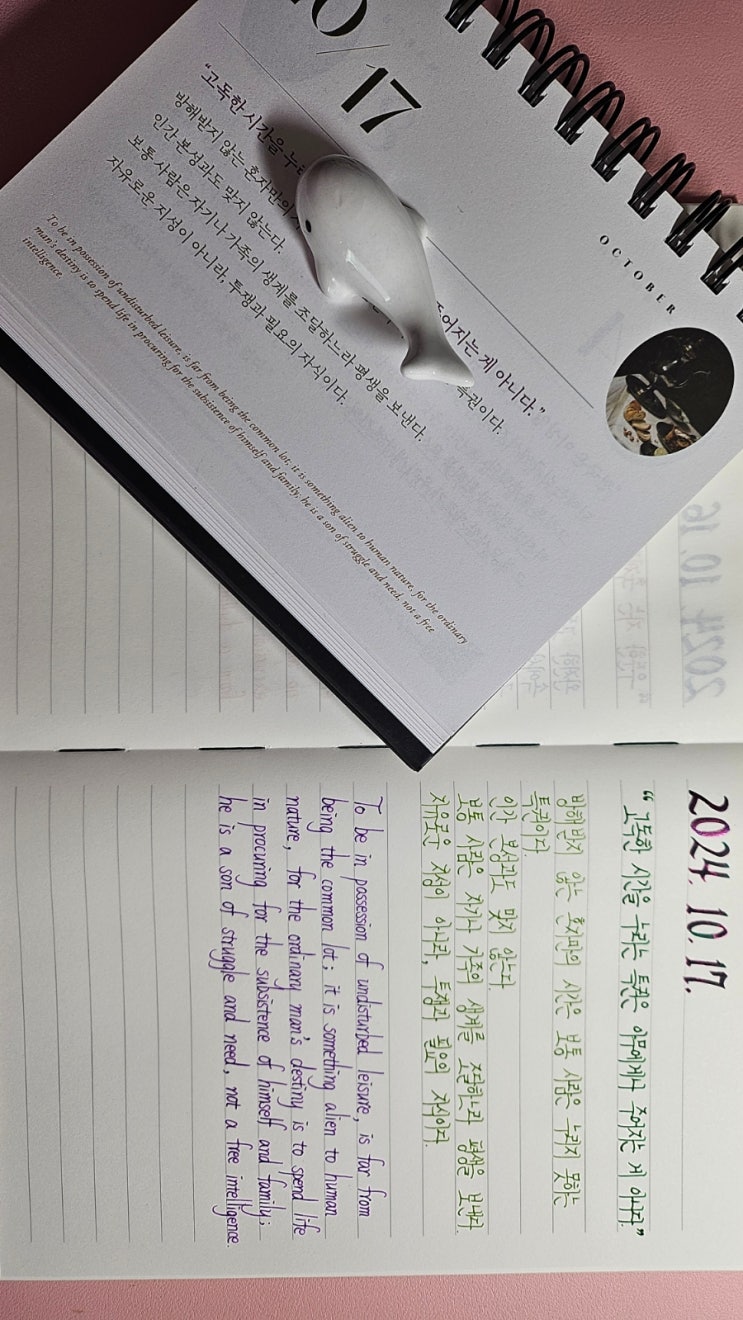 10/17
OCTOBER
"고독한 시간을 누리 주어지는 게 아니다."
방해받지 않는 혼자만의 시 특권이다.
인간 본성과도 맞지 않는다.
보통 사람은 자기나 가족의 생계를 조달하느라 평생을 보낸다.
자유로운 지성이 아니라, 투쟁과 필요의 자식이다.
To be in possession of undisturbed leisure, is far from being the common lot; it is something alien to human nature, for the ordinary
man's destiny is to spend life in procuring for the subsistence of himself and family; he is a son of struggle and need, not a free
intelligence.
2024. 10. 16
2024. 10. 17.
"고독한 시간을 누리는 특권은 아무에게나 주어지는 게 아니다."
방해받지 않는 혼자만의 시간은 보통 사람은 누리지 못하는
특권이다.
인간 본성과도 맞지 않는다.
보통 사람은 자기나 가족의 생계를 조달하느라 평생을 보낸다.
자유로운 지성이 아니라, 투쟁과 필요의 자식이다.
To be in possession of undisturbed leisure, is far from
being the common lot; it is something alien to human
nature, for the ordinary man's destiny is to spend life
in procuring for the subsistence of himself and family;
he is a son of struggle and need, not a free intelligence.